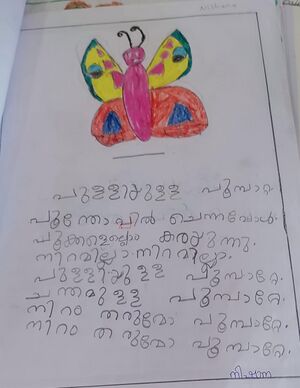 Nishana
പുള്ളിയുള്ള പൂമ്പാറ്റ
പൂന്തോപ്പിൽ ചെന്നപ്പോൾ.
പൂക്കളെല്ലാം കരയുന്നു.
നിറമില്ലാ നിറമില്ലാ.
പുള്ളിയുള്ള പൂമ്പാറ്റേ.
ചന്തമുള്ള പൂമ്പാറ്റേ.
നിറം തരുമോ പൂമ്പാറ്റേ.
നിറം തരുമോ പൂമ്പാറ്റേ.
നിഷാന